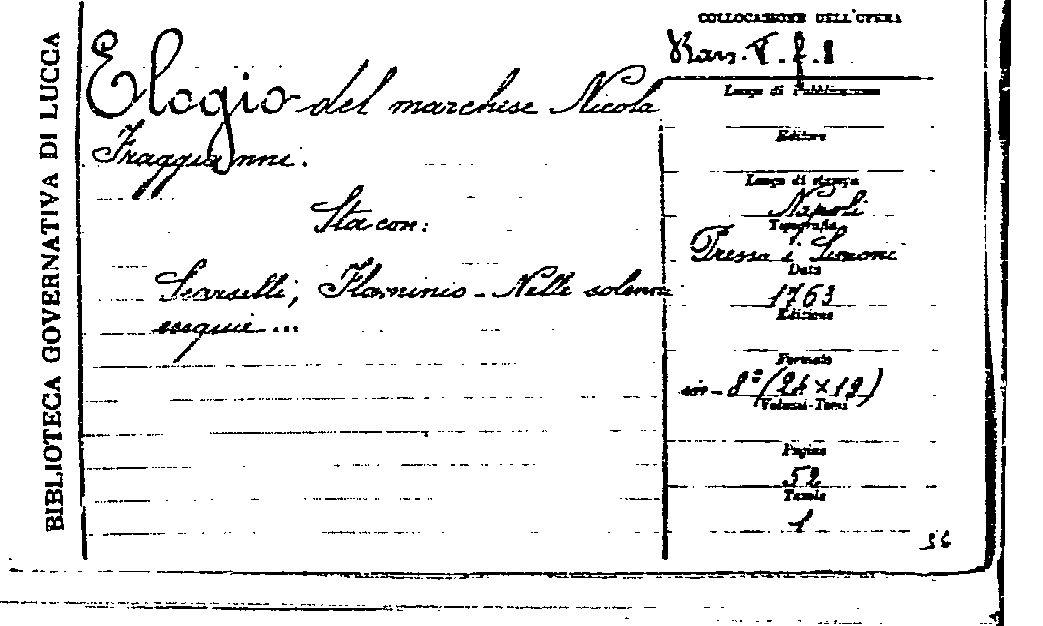 BIBLIOTECA GOVERNATIVA DI LUCCA
COLLOCAZIONE DELL'OPERA
Elogio del marchese Nicola
Fraggianni.
Sta con:
Scarselli, Flaminio - Nelle solenni
esequie ...
Luogo di Pubblicazione
Editore
Luogo di stampa
Napoli
Tipografia
Presso i Simoni
Data
1763
Edizione
Formato
in-8° (24×19)
Volumi-Tomi
Pagine
52
Tavole
1